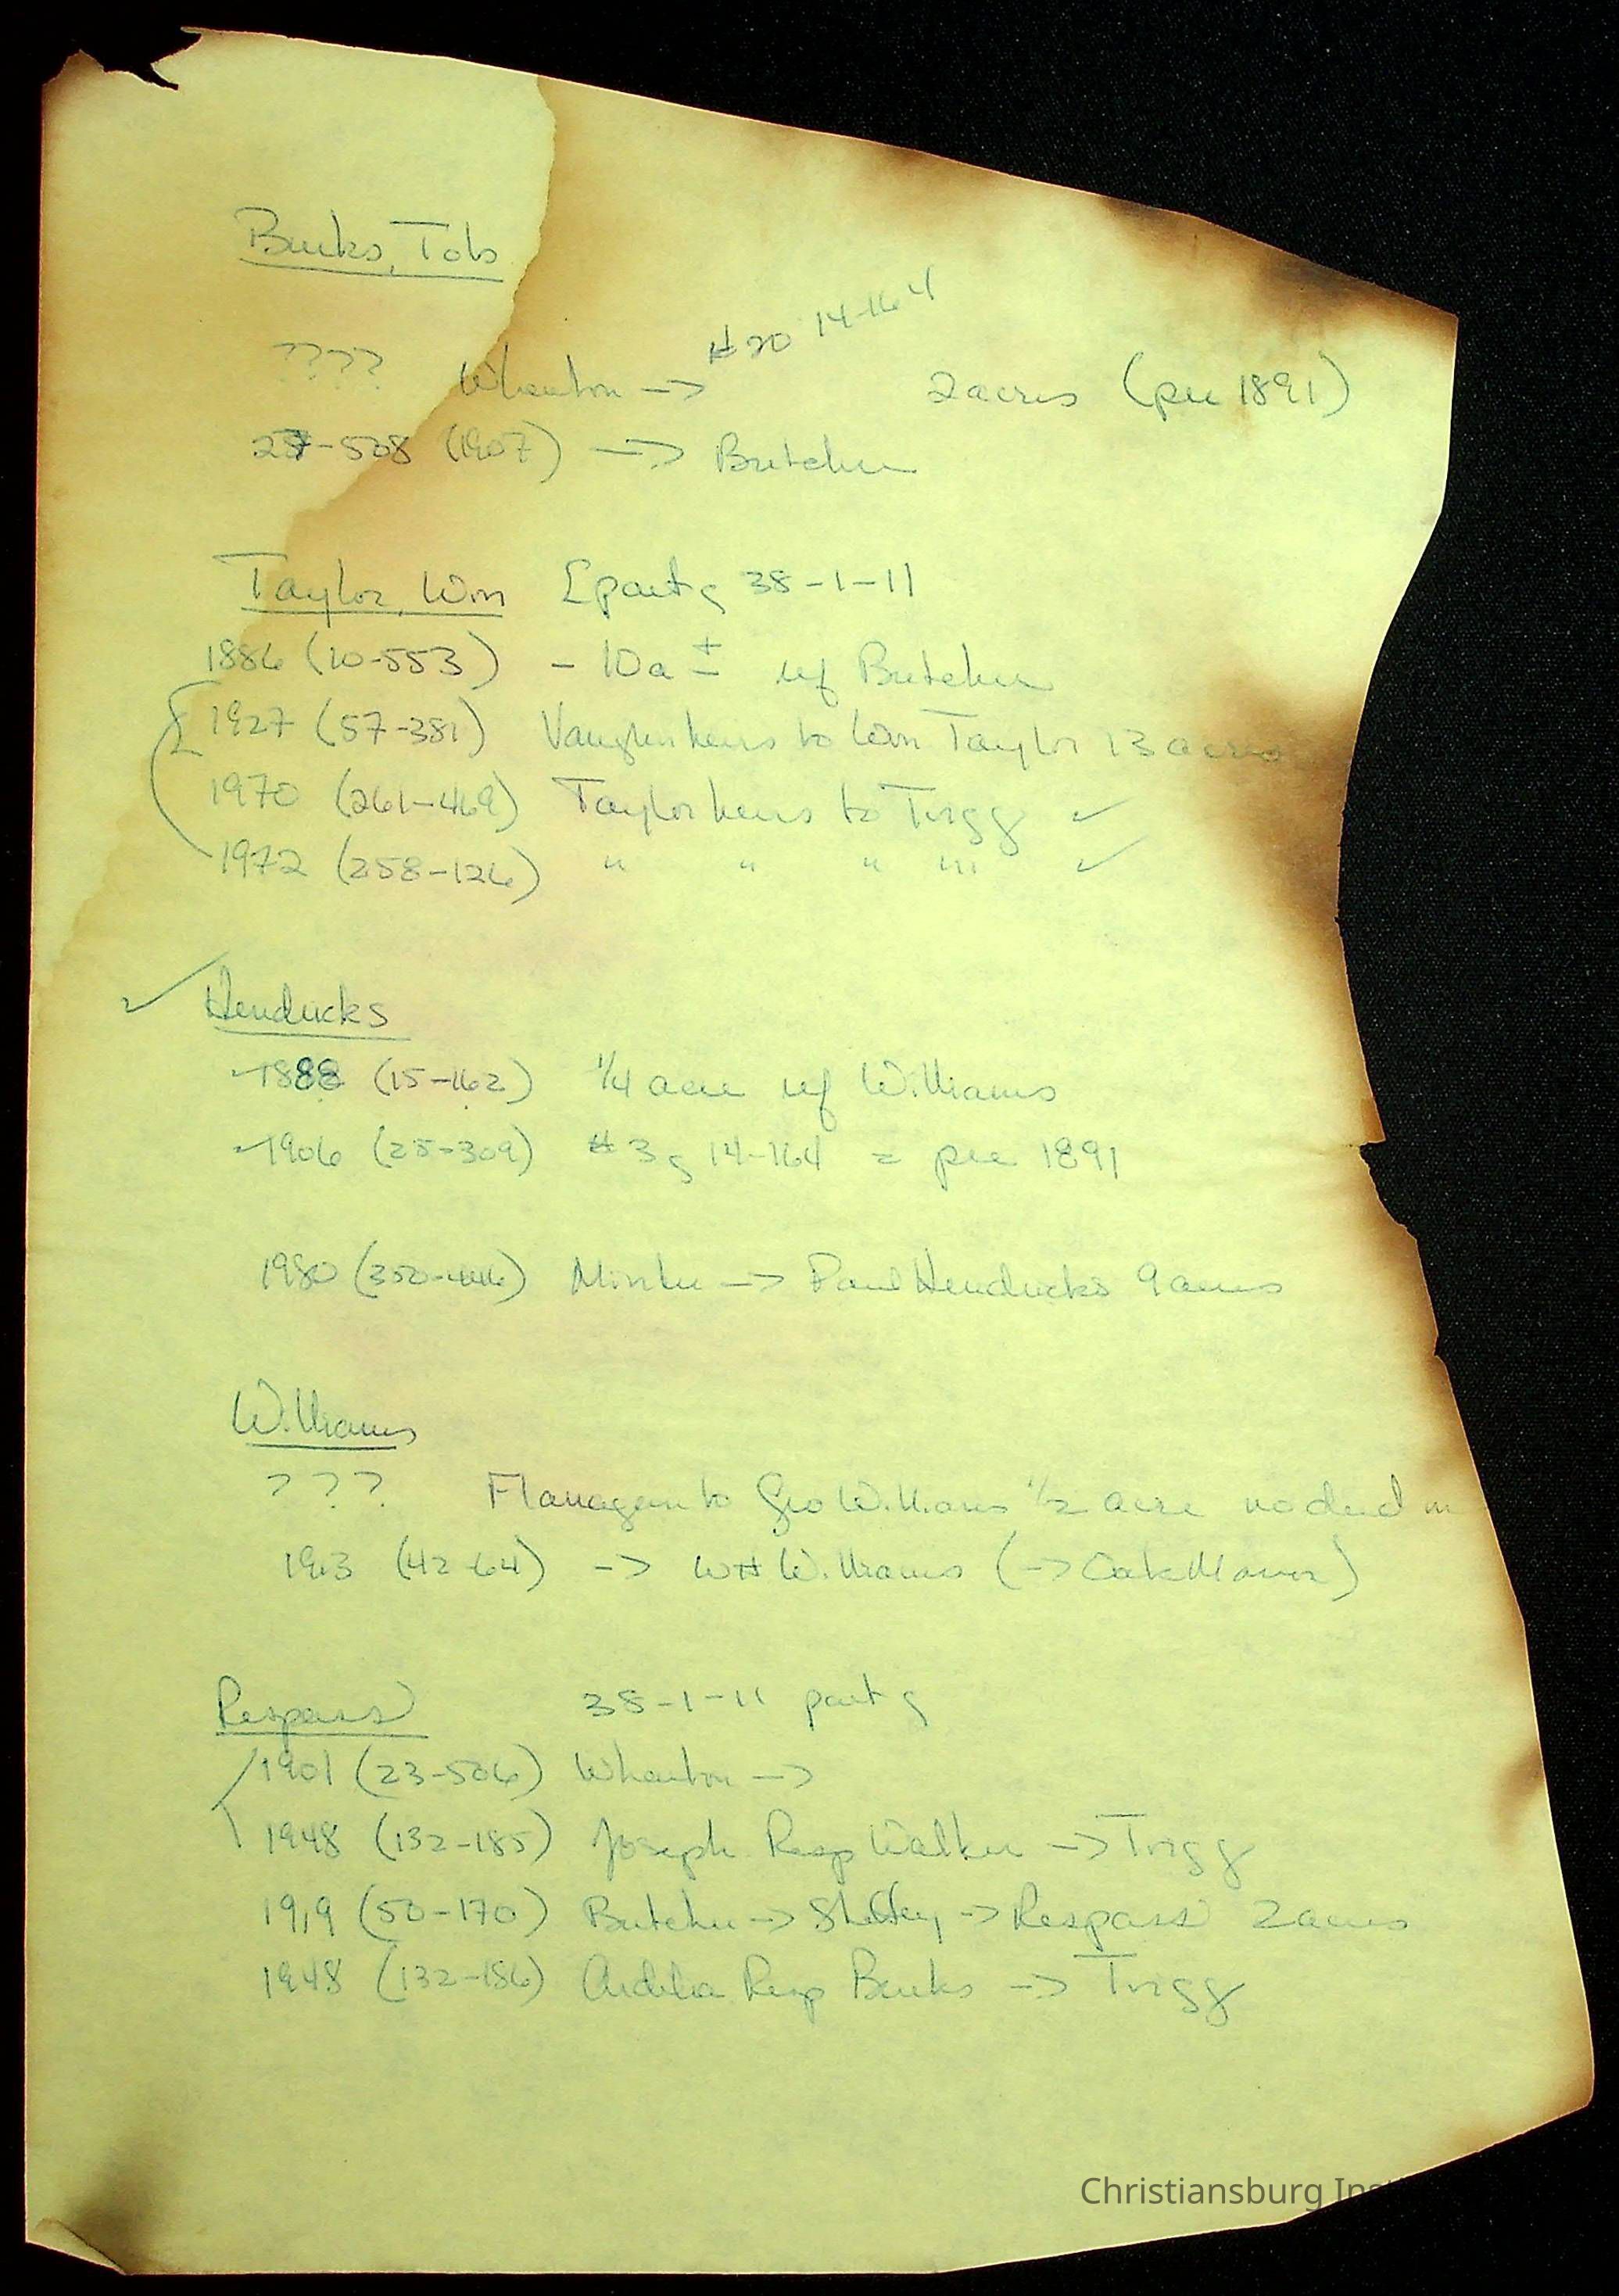 Burks, Tobs
#20 14-164
???? Wharton -> 2 acres (pre 1891)
27-508 (1907) -> Butcher
Taylor, Wm [part of 38-1-11
1886 (10-553) - 10a ± ref Butcher
1927 (57-381) Vaughn heirs to Wm Taylor 13 acres
1970 (261-469) Taylor heirs to Trigg ✓
1972 (258-126) " " " " ✓
✓ Hendricks
✓1888 (15-162) 1/4 acre ref Williams
✓1906 (25-309) #3 of 14-164 = pre 1891
1980 (350-446) Minter -> Paul Hendricks 9 acres
Williams
??? Flanagan to Geo Williams 1/2 acre no deed
1913 (42-64) -> WH Williams (-> Oak Manor)
Respass 38-1-11 part of
1901 (23-506) Wharton ->
1948 (132-185) Joseph Resp Walker -> Trigg
1919 (50-170) Butcher -> -> Respass 2 acres
1948 (132-186) Ardelia Resp Banks -> Trigg
Christiansburg